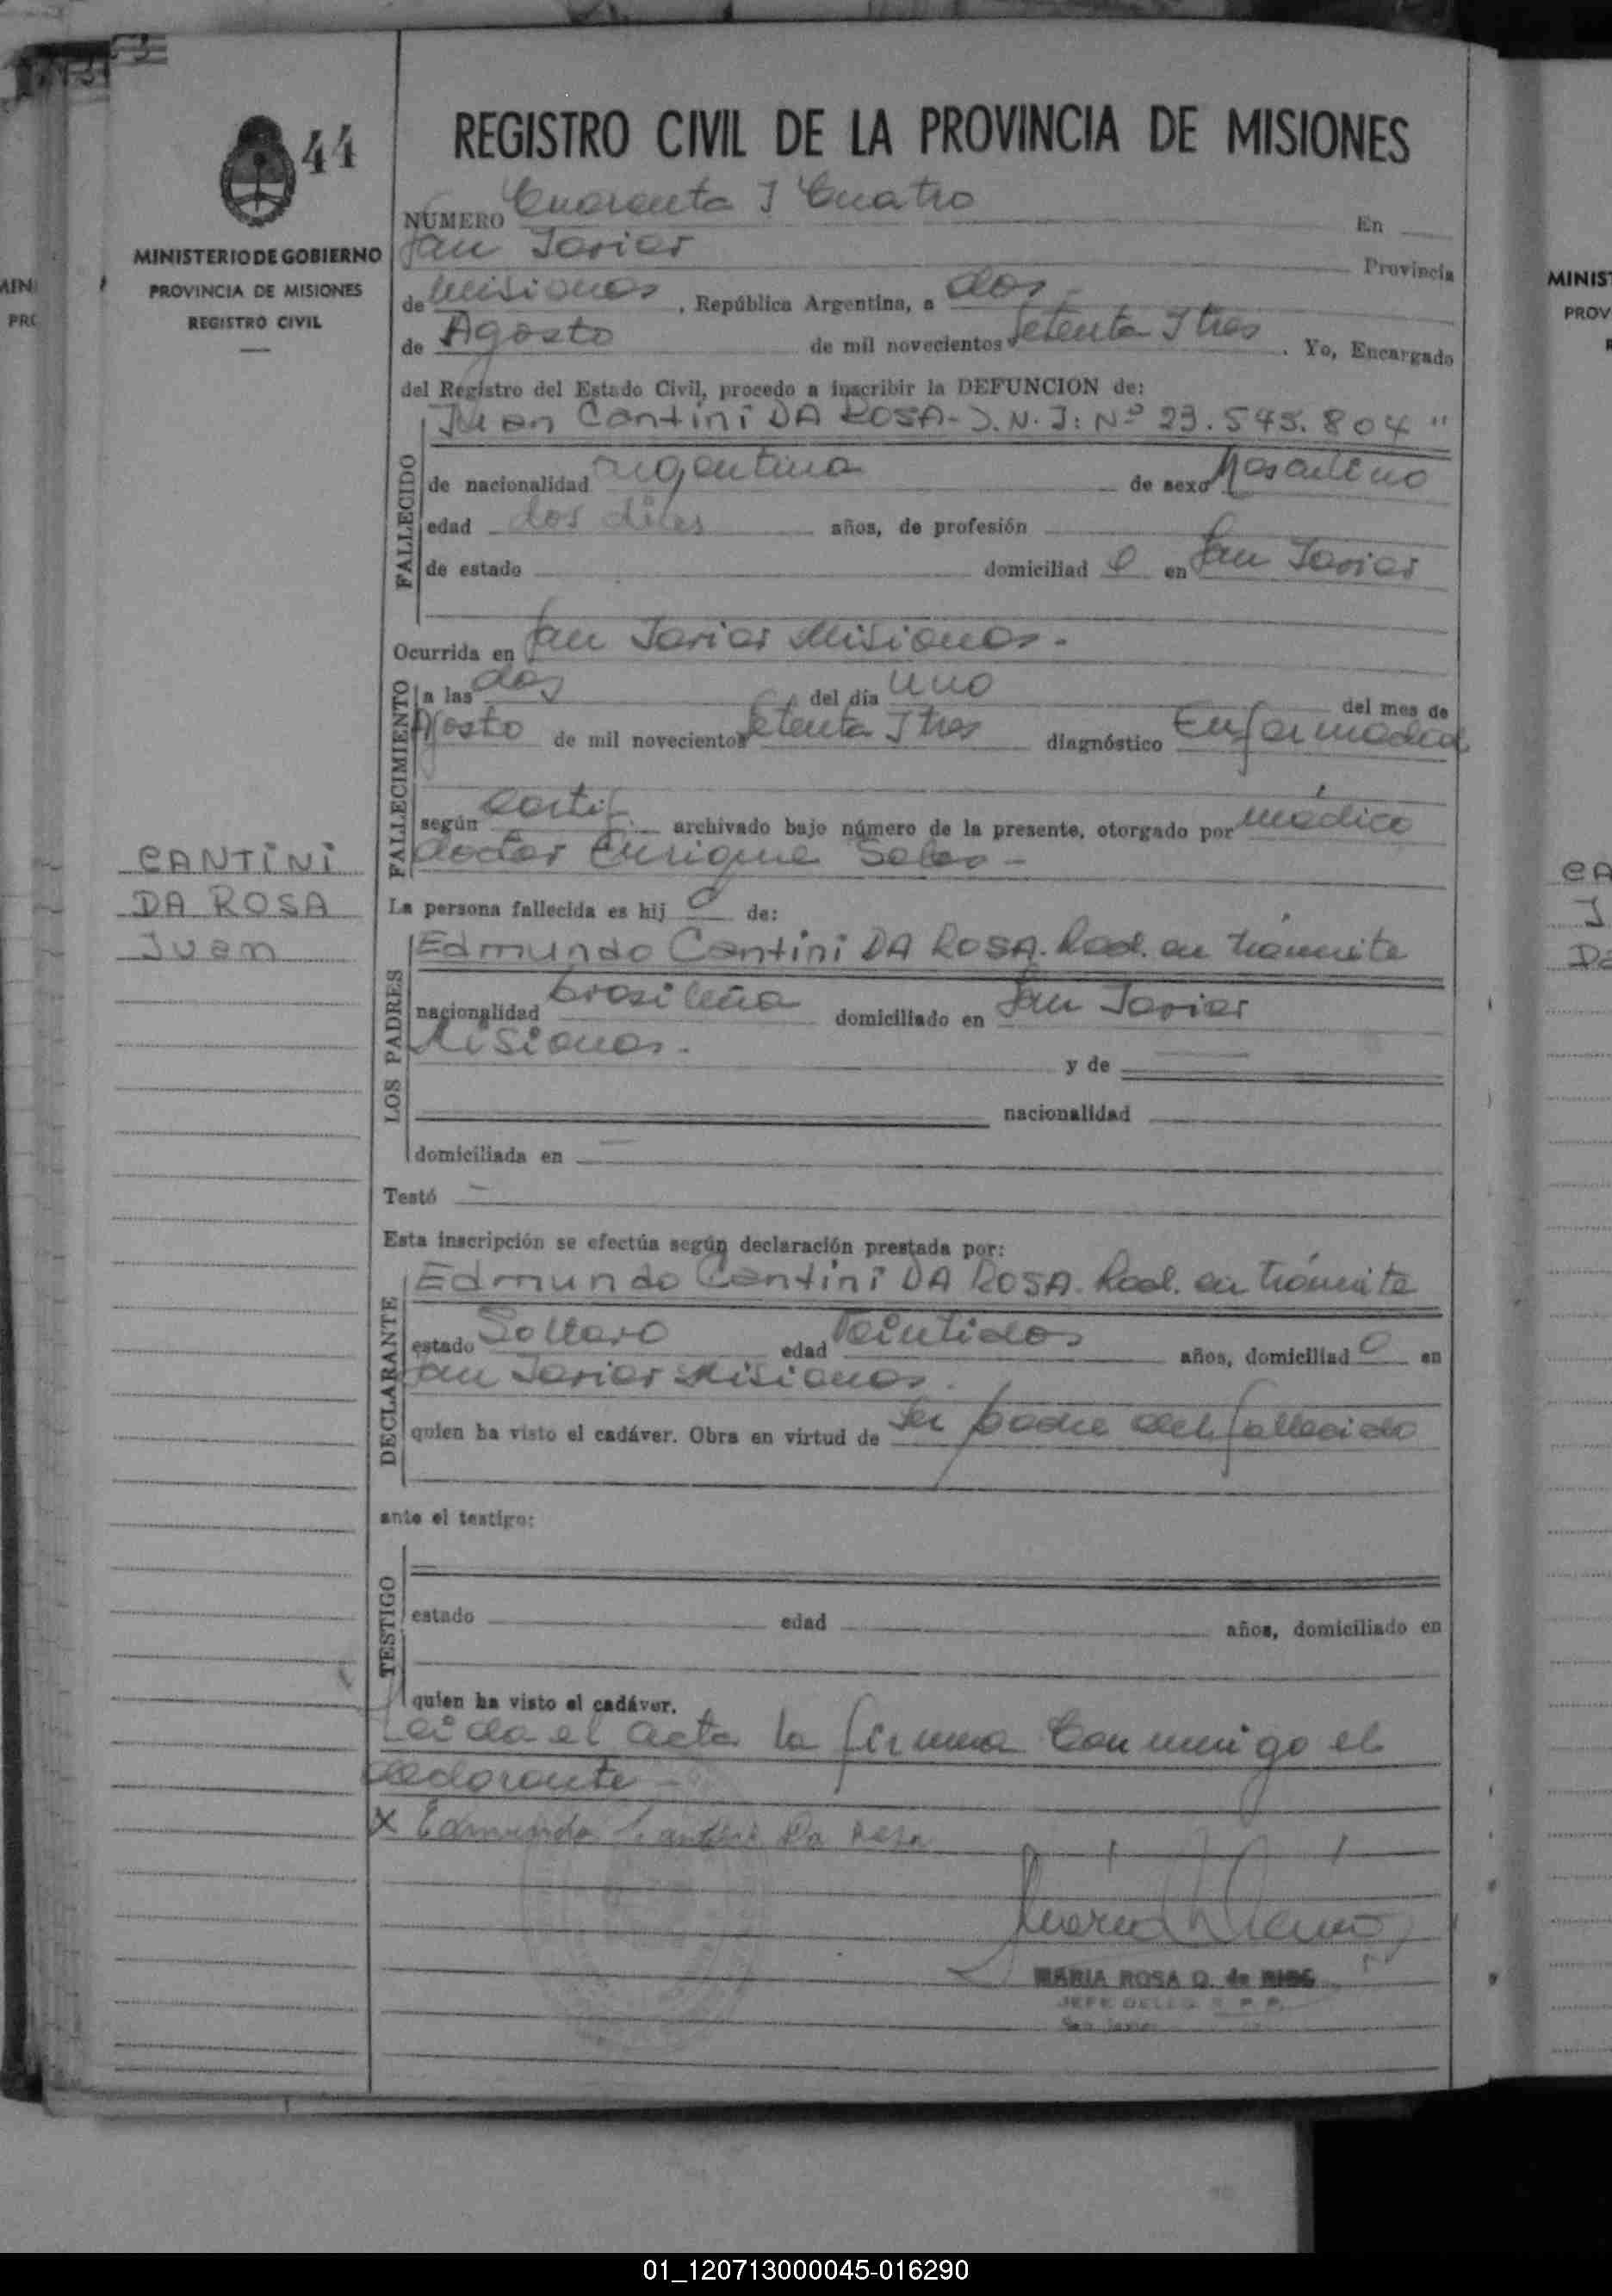 44
MINISTERIO DE GOBIERNO
PROVINCIA DE MISIONES
REGISTRO CIVIL
REGISTRO CIVIL DE LA PROVINCIA DE MISIONES
NÚMERO Cuarenta y Cuatro En
San Javier Provincia
de Misiones, República Argentina, a dos-
de Agosto de mil novecientos setenta y tres. Yo, Encargado
del Registro del Estado Civil, procedo a inscribir la DEFUNCION de:
Juan Cantini DA ROSA- D.N.I: Nº 23.545.804"
FALLECIDO
de nacionalidad argentina de sexo Masculino
edad dos días años, de profesión
de estado domiciliad o en San Javier
Ocurrida en San Javier Misiones.-
FALLECIMIENTO
a las dos del día uno del mes de
Agosto de mil novecientos setenta y tres diagnóstico Enfermedad
según Certif. archivado bajo número de la presente, otorgado por médico
doctor Enrique -
CANTINI
DA ROSA
Juan
La persona fallecida es hij o de:
LOS PADRES
Edmundo Cantini DA ROSA. Rad. en trámite
nacionalidad brasileña domiciliado en San Javier
Misiones.-
y de
nacionalidad
domiciliada en —
Testó —
Esta inscripción se efectúa según declaración prestada por:
DECLARANTE
Edmundo Cantini DA ROSA. Rad. en trámite
estado Soltero edad Veintidos años, domiciliad o en
San Javier Misiones.
quien ha visto el cadáver. Obra en virtud de ser padre del fallecido
ante el testigo:
TESTIGO
estado edad años, domiciliado en
quien ha visto el cadáver.
Leida el acta la firma conmigo el
declarante-
x Edmundo Cantini Da Rosa
MARIA ROSA Q. de
JEFE
San Javier
MINIS
PROV
CA
J
DA
01_120713000045-016290